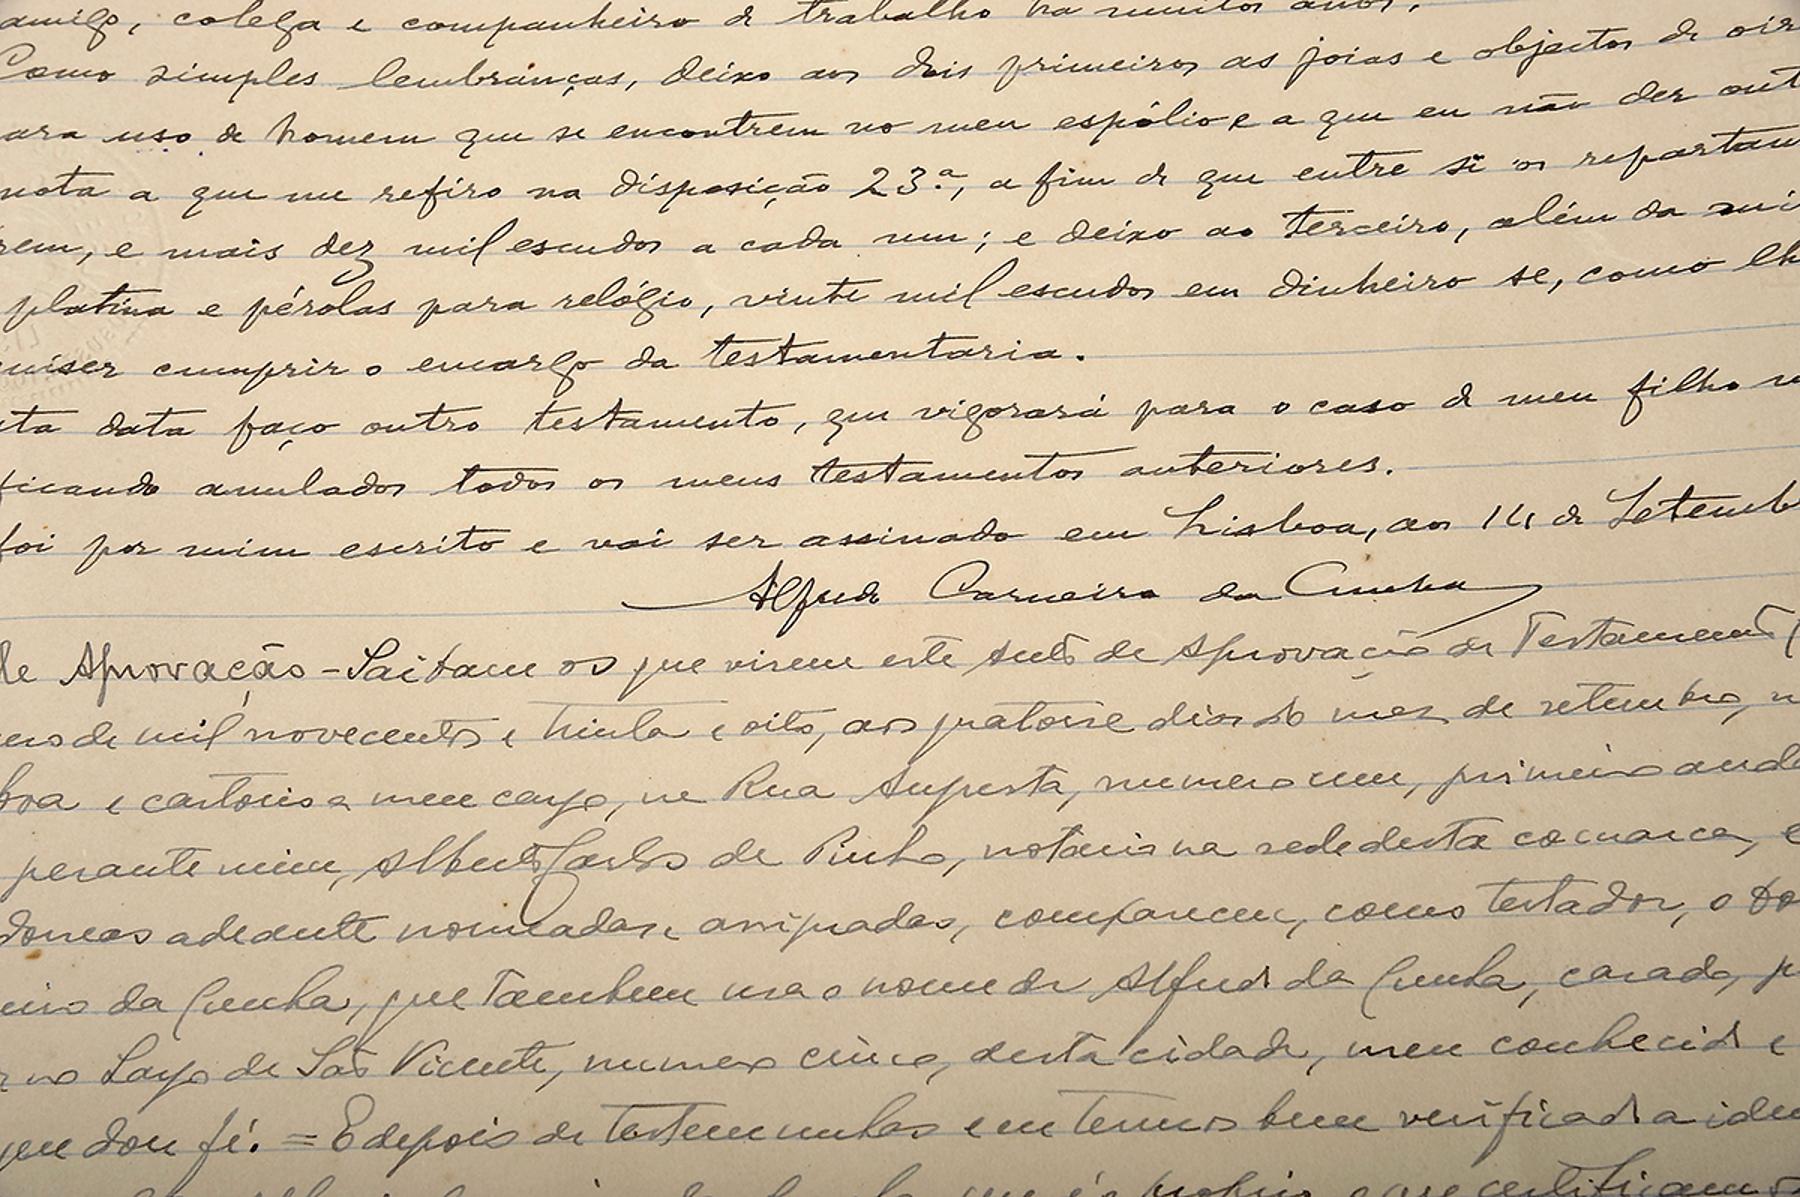 amigo, colega e companheiro de trabalho ha muitos anos.
Como simples lembranças, deixo aos dois primeiros as joias e objectos de oir
ara uso de homem que se encontrem no meu espólio e a que eu não der out
nota a que me refiro na disposição 23.ª, a fim de que entre si os repartam
rem, e mais dez mil escudos a cada um; e deixo ao terceiro, além da mi
platina e pérolas para relógio, vinte mil escudos em dinheiro se, como lh
uiser cumprir o encargo da testamentaria.
sta data faço outro testamento, que vigorará para o caso de meu filho
ficando anulados todos os meus testamentos anteriores.
foi por mim escrito e vai ser assinado em Lisboa, aos 14 de Setemb
Alfredo Carneiro da Cunha
de Aprovação - Saibam os que virem este auto de Aprovação de Testamento
de mil novecentos e trinta e oito, aos quatorze dias do mez de setembro, n
boa e cartorio a meu cargo, na Rua Augusta, numero um, primeiro anda
perante mim, Alberto Carlos de Pinho, notario na sede desta comarca, e
doneas adeante nomeadas e assignadas, compareceu, como testador, o Do
eiro da Cunha, que tambem usa o nome de Alfredo da Cunha, casado, p
no Largo de São Vicente, numero cinco, desta cidade, meu conhecido e
que dou fé. = E depois de testemunhas e eu termos bem verificado a iden
que é o proprio e